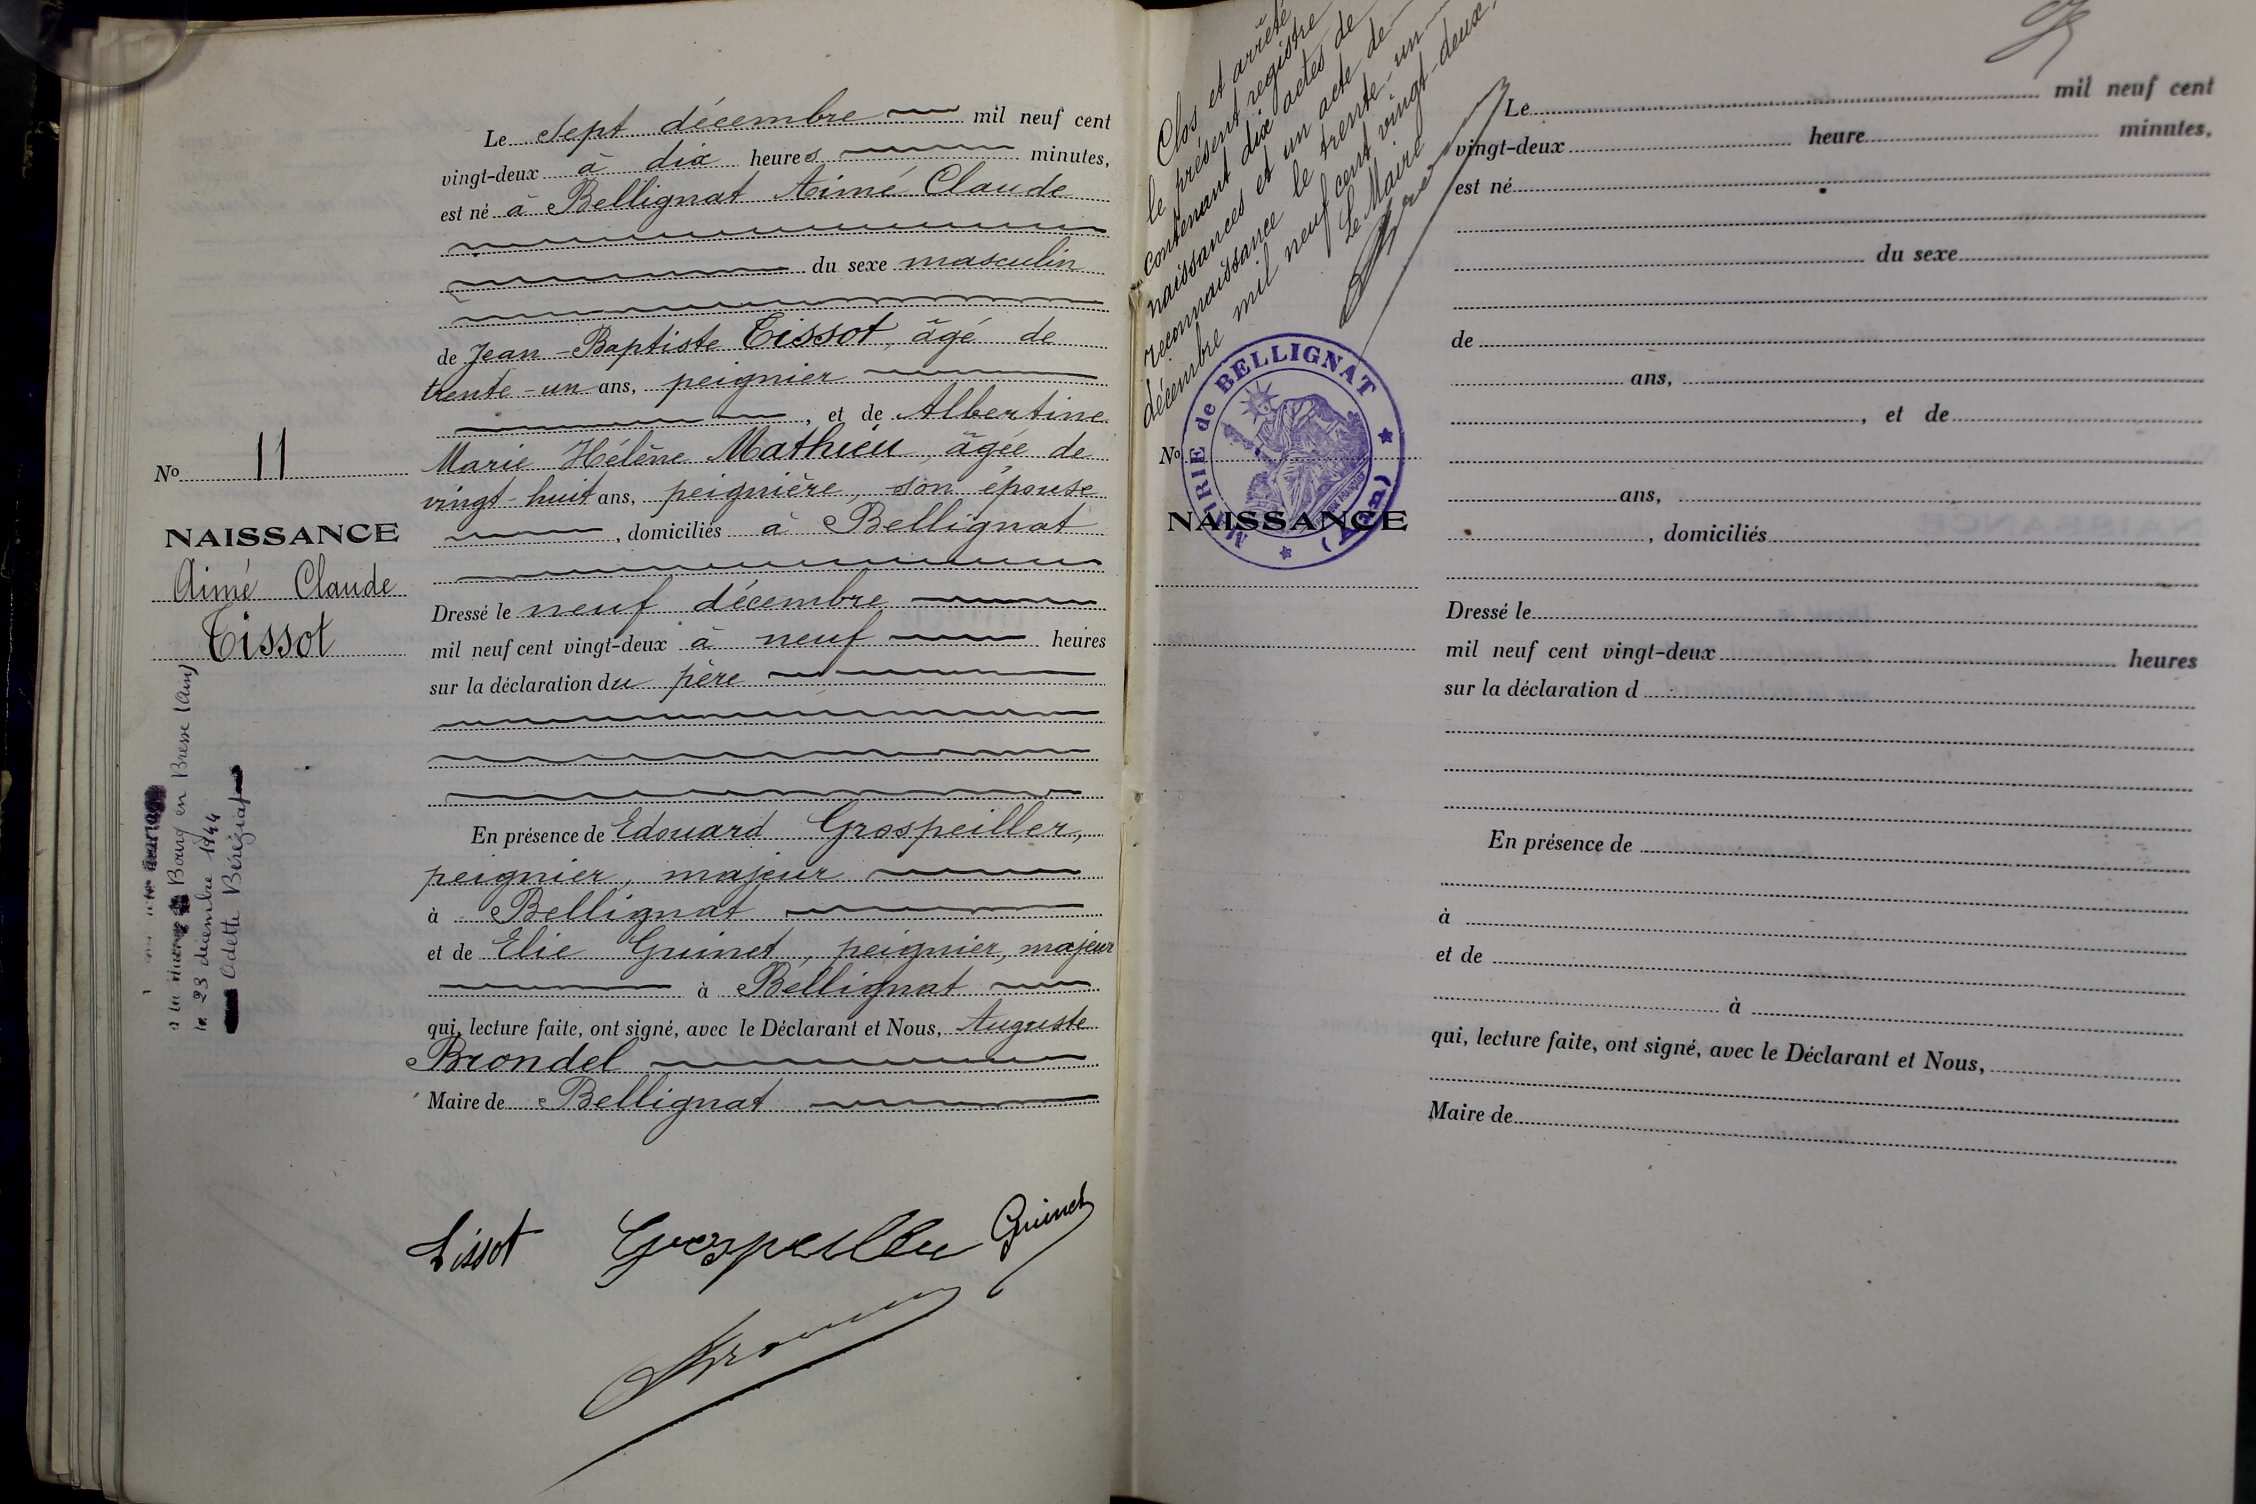 Le Sept décembre mil neuf cent
vingt-deux à dix heures minutes,
est né à Bellignat Aimé Claude
du sexe masculin
de Jean-Baptiste Tissot, âgé de
trente-un ans, peignier
, et de Albertine
Marie Hélène Mathieu, âgée de
vingt-huit ans, peignière, son épouse
, domiciliés à Bellignat
Dressé le neuf décembre
mil neuf cent vingt-deux à neuf heures
sur la déclaration du père
En présence de Edouard Grospeiller,
peignier, majeur
à Bellignat
et de Elie Guinet, peignier, majeur
à Bellignat
qui, lecture faite, ont signé, avec le Déclarant et Nous, Auguste
Brondel
Maire de Bellignat
Tissot Grospeiller Guinet
No 11
NAISSANCE
Aimé Claude
Tissot
Bourg en Bresse (Ain)
le 23 décembre 1944
Odette
Clos et arrêté
le présent registre
contenant dix actes de
naissances et un acte de
reconnaissance le trente-un
décembre mil neuf cent vingt-deux,
Le Maire
MAIRIE de BELLIGNAT
(Ain)
No
NAISSANCE
Le mil neuf cent
vingt-deux heure minutes,
est né
du sexe
de
ans,
, et de
ans,
, domiciliés
Dressé le
mil neuf cent vingt-deux heures
sur la déclaration d
En présence de
à
et de
à
qui, lecture faite, ont signé, avec le Déclarant et Nous,
Maire de